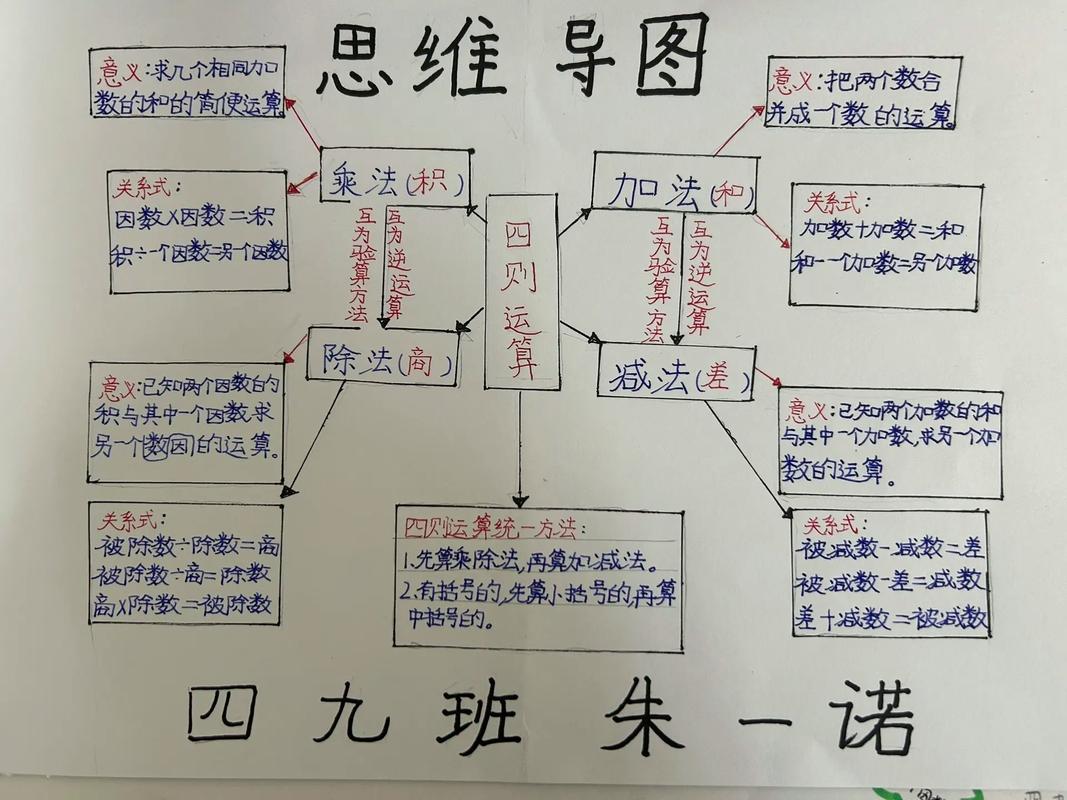 思维导图
意义:求几个相同加
数的和的简便运算。
乘法(积)
关系式:
因数×因数=积
积÷一个因数=另一个因数
意义:把两个数合
并成一个数的运算。
加法(和)
关系式:
加数+加数=和
和-一个加数=另一个加数
四则运算
互为验算方法
互为逆运算
互为验算方法
互为逆运算
除法(商)
意义:已知两个因数的
积与其中一个因数求
另一个数因的运算。
关系式:
被除数÷除数=商
被除数÷商=除数
商×除数=被除数
减法(差)
意义:已知两个加数的和
与其中一个加数,求另一个加
数的运算。
关系式:
被减数-减数=差
被减数-差=减数
差+减数=被减数
四则运算统一方法:
1.先算乘除法,再算加减法。
2.有括号的,先算小括号的,再算
中括号的。
四九班 朱一诺